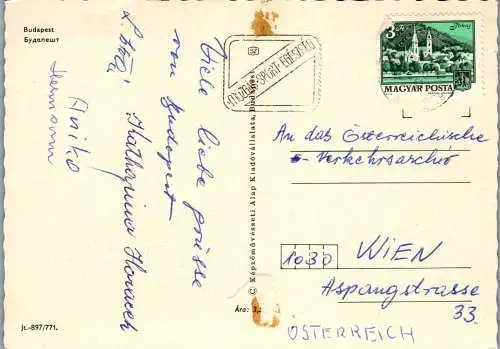 Budapest
Будапешт
Viele liebe grüsse
von Budapest
Katharina Horacek
Aniko
Hermann
Jt.-897/771.
© Képzőművészeti Alap Kiadóvállalata, Budapest
Ára: 3,
MOZGÁS-SPORT-EGÉSZSÉG
3 Ft
Tokaj
MAGYAR POSTA
An das Österreichische
Verkehrsarchiv
1030 WIEN
Aspangstrasse
33.
ÖSTERREICH